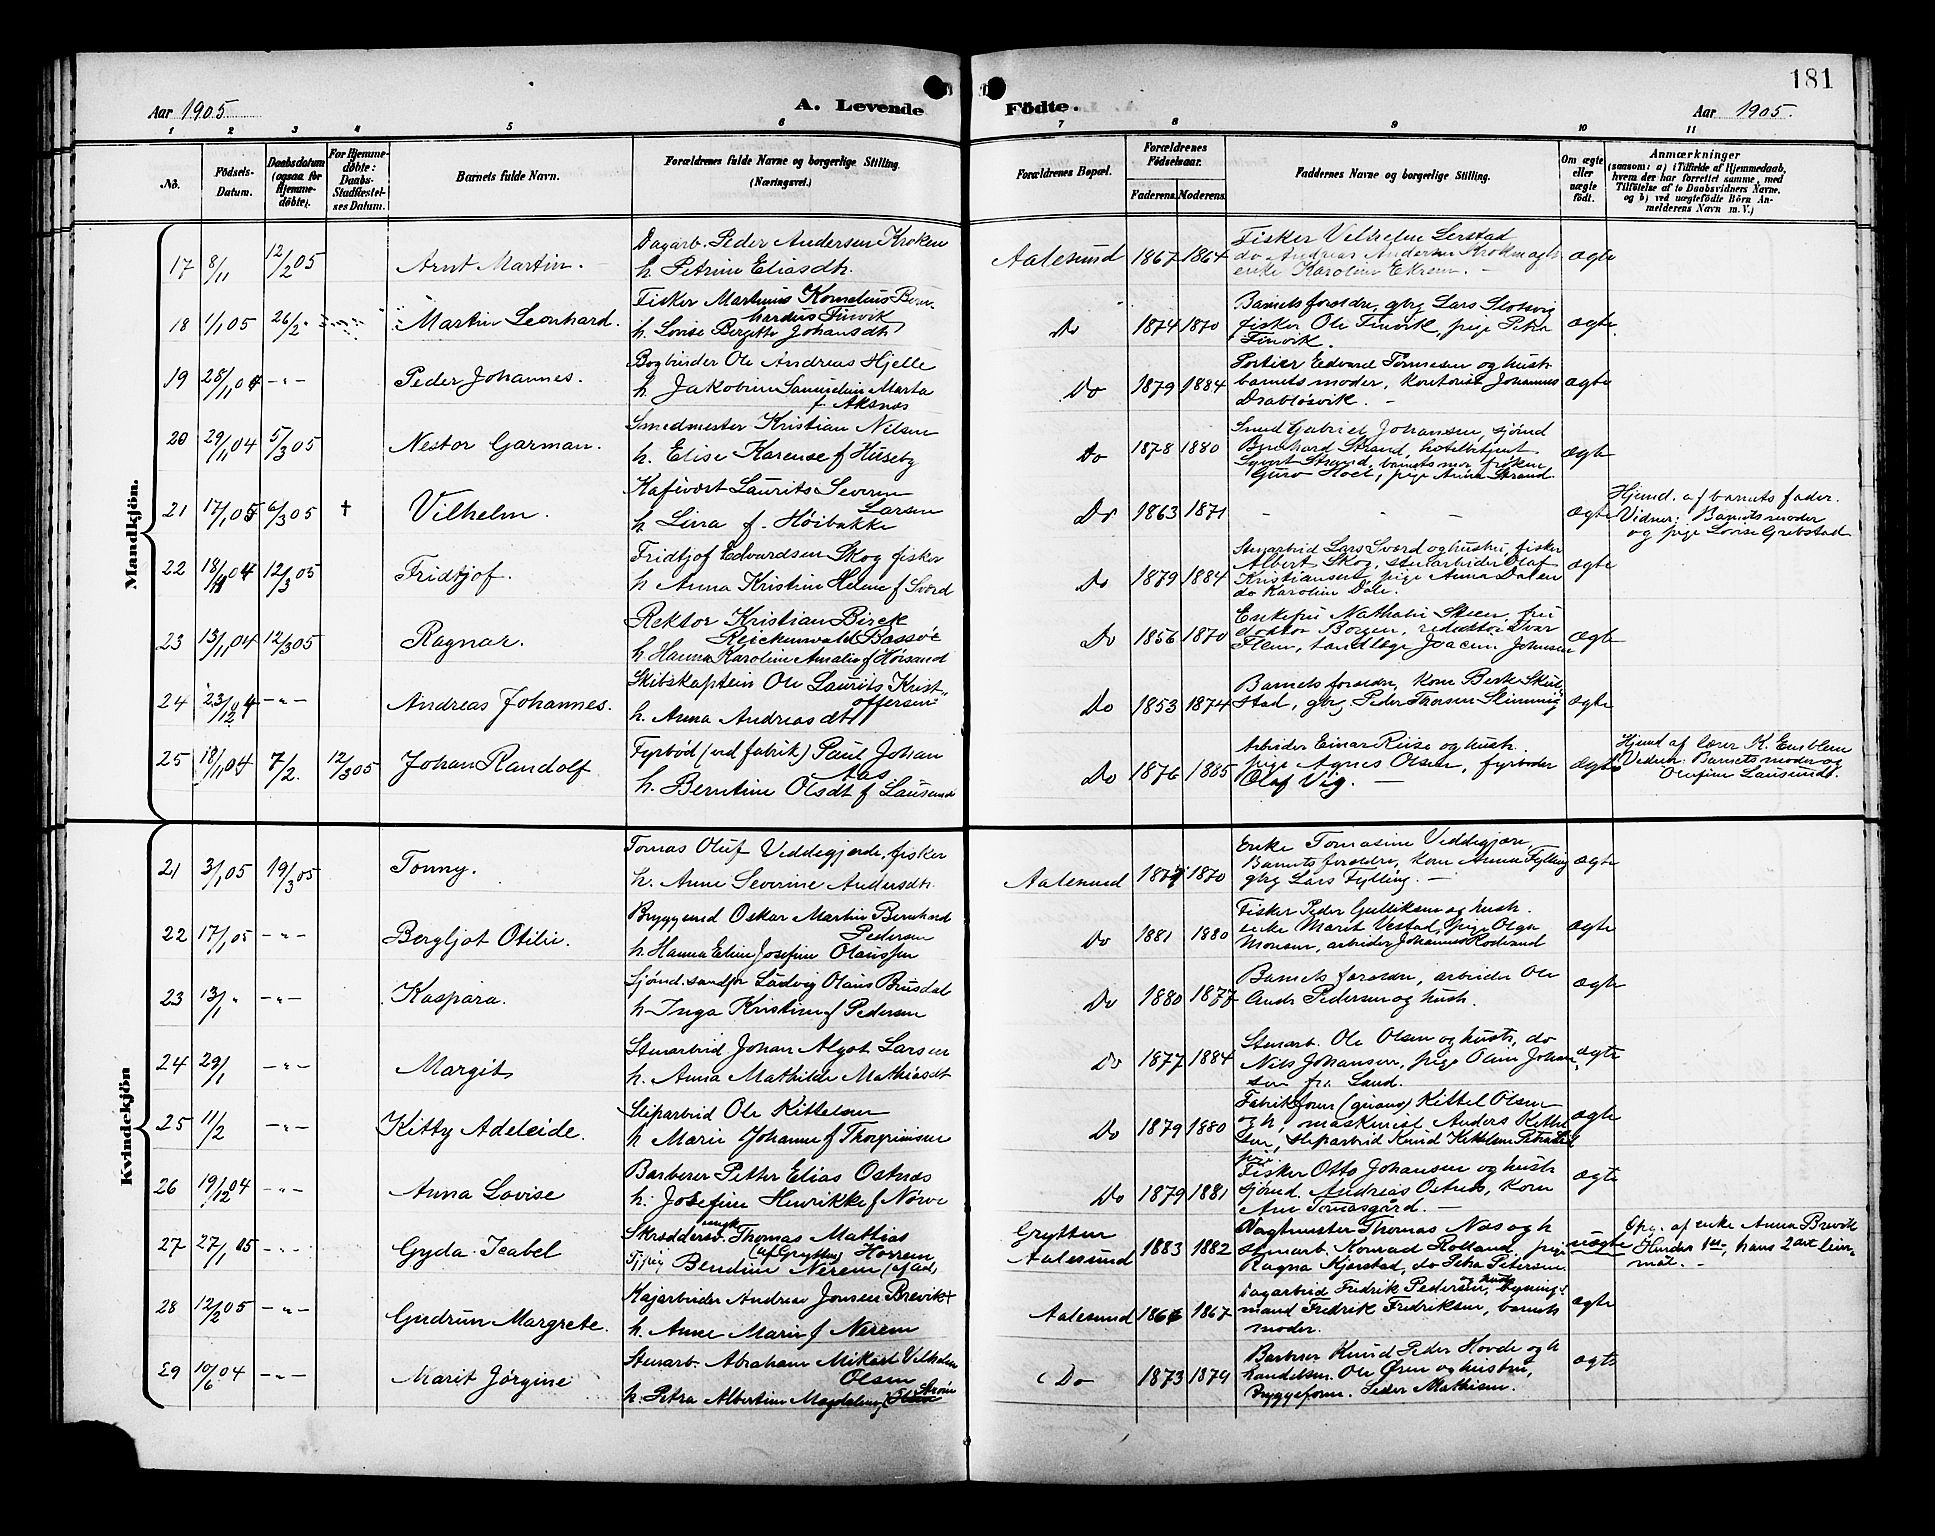 181
Aar 1905
A. Levende
Födte.
Aar 1905.
1 2 3 4 5 6 7 8 9 10 11
No.
Födsels-
Datum.
Daabsdatum
(ogsaa for
Hjemme-
döbte).
For Hjemme-
döbte:
Daabs-
Stadfæstel-
ses Datum.
Barnets fulde Navn.
Forældrenes fulde Navne og borgerlige Stilling.
(Næringsvei.)
Forældrenes Bopæl.
Forældrenes
Födselsaar.
Faderens. Moderens.
Faddernes Navne og borgerlige Stilling.
Om ægte
eller
uægte
födt.
Anmærkninger
(saasom: a) i Tilfælde af Hjemmedaab,
hvem der har forrettet samme, med
Tilföielse af to Daabsvidners Navne,
og b) ved uægtefödte Börn An-
melderens Navn m. V.)
Mandkjön.
17 8/11 12/2 05 Arnt Martin.
Dagarb. Peder Andersen Kroken
h. Petrine Eliasdh.
Aalesund 1867 1864
Fisker Vilhelm Lerstad
do Andreas Andersen Kroken og h
enke Karoline Ekrem. -
ægte
18 1/1 05 26/2 Martin Leonhard.
Fisker Martinus Kornelius Bern-
hardus Finvik
h. Lovise Bergitte Johansdh
Do 1874 1870
Barnets foreldre, gbrg Lars Slotsvig
fisker Ole Finvik, pige Petra
Finvik.
ægte
19 28/11 04 -"- Peder Johannes.
Bogbinder Ole Andreas Hjelle
h. Jakobine Samueline Marta
f. Aksnes
Do 1879 1884
Portier Edvard Tønnesen og hust
barnets moder, kontorist Johannes
Drabløsvik. -
ægte
20 29/11 04 5/3 05 Nestor Garman.
Smedmester Kristian Nilsen
h. Elise Karense f Huseby
Do 1878 1880
Smed Gabriel Johansen, sjömd
Bernhard Strand, hotelbetjent
Syvert Strand, barnets mor, frøken
Guro Hoel, pige Anna Strand.
ægte
21 17/1 05 6/3 05 † Vilhelm.
Kafévært Laurits Severin
Larsen
h. Lina f. Høibakke
Do 1863 1871
- - -
ægte
Hjemd. af barnets fader.
Vidner: Barnets moder
og pige Lovise Grebstad
22 18/11 04 12/3 05 Fridtjof.
Fridtjof Edvardsen Skog fisker
h Anna Kristine Helene f Sværd
Do 1879 1884
Stenarbeid Lars Sværd og hustru, fisker
Albert Skog, stenarbeider Olaf
Kristiansen, pige Anna Dalen
do Karoline Dale.
ægte
23 13/11 04 12/3 05 Ragnar.
Rektor Kristian Birck
Reichenwald Bassöe
h Hanna Karoline Amalie f Høisand
Do 1856 1870
Enkefru Nathalie Skeen, fru
doktor Borgen, redaktør Ivar
Flem, tandlæge Joacim Johnsen
ægte
24 23/12 04 -"- Andreas Johannes.
Skibskaptein Ole Laurits Krist-
offersen
h. Anna Andreasdtr
Do 1853 1874
Barnets foreldre, kone Berte
stad, gbrg Peder Thorsen Slinning
ægte
25 18/11 04 7/2. 12/3 05 Johan Randolf
Fyrbød (ved fabrik) Paul Johan
Aas
h. Berntine Olsdt f Lausund
Do 1876 1885
Arbeider Einar Riise og hust.
pige Agnes Olsen, fyrbøder
Olaf Vig. -
ægte
Hjemd af lærer K. Emblem
Vidner: Barnets moder og
Olufine Lausund.
Kvindekjön
21 3/1 05 19/3 05 Tonny.
Tomas Oluf Veddegjerde, fisker
h. Anne Severine Andersdh
Aalesund 1870
Enke Tomasine Veddegjære,
Barnets foreldre, kone Anna Fylling
gbrg Lars Fylling. -
ægte
22 17/1 05 -"- Bergljot Otilie.
Bryggemd Oskar Martin Bernhard
Pedersen
h. Hanna Eline Josefine Olaussen
Do 1881 1880
Fisker Peder Gulliksen og hust.
enke Marit Vestad, pige Olga
Monsen, arbeider Johannes Rodesund
ægte
23 13/1 " -"- Kaspara.
Sjömd. Ludvig Olaus Brusdal
h Inga Kristine f Pedersen
Do 1880 1877
Barnets foreldre, arbeider Ole
Andr Pedersen og hust.
ægte
24 29/1 -"- Margit
Stenarbeid Johan Algot Larsen
h. Anna Mathilde Mathiasdt
Do 1877 1884
Stenarb. Ole Olsen og hust, do
Nils Johansen, pige Oline Johan-
sen fra Sand.
ægte
25 11/2 -"- Kitty Adeleide.
Sliparbeid Ole Kittelsen
h Marie Johanne f Thorgrimsen
Do 1879 1880
Fabrikform (guano) Kittel Olsen
og h, maskinist Anders Kittel-
sen, sliparbeid Knud Kittelsen
pige.
ægte
26 19/12 04 -"- Anna Lovise
Barberer Petter Elias Ostnes
h. Josefine Henrikke f Nørve
Do 1879 1881
Fisker Otto Johansen og hust
sjömd. Andreas Ostnes, kone
Ane Tomasgård. -
ægte
27 27/1 05 -"- Gyda Isabel
Skræddersv. Thomas Mathias
(af Grytten) Horrem
Tj. pig Bendine Nerem
Grytten
Aalesund 1883 1882
Vagtmester Thomas Næs og h
stenarb. Konrad Rolland, pige
Ragna Kjerstad, do Petra Petersen.
uægte
Opg. af enke Anna Brevik
Hendes 1ste, hans 2det leier-
mål. -
28 12/2 05 -"- Gudrun Margrete.
Kajarbeider Andreas Jonsen Brevik †
h. Anne Marie f Nerem
Aalesund 1867
Dagarbeid Fredrik Pedersen og hust,
mand Fredrik Fredriksen, barnets
moder.
ægte
29 10/6 04 -"- Marit Jørgine
Stenarb. Abraham Mikael Vilhelm
Olsen
h. Petra Albertine Magdalene
Do 1873 1879
Barberer Knud Peder Hovde og h
handelsm. Ole Øren og hustru,
Bryggeform. Peder Mathisen.
ægte